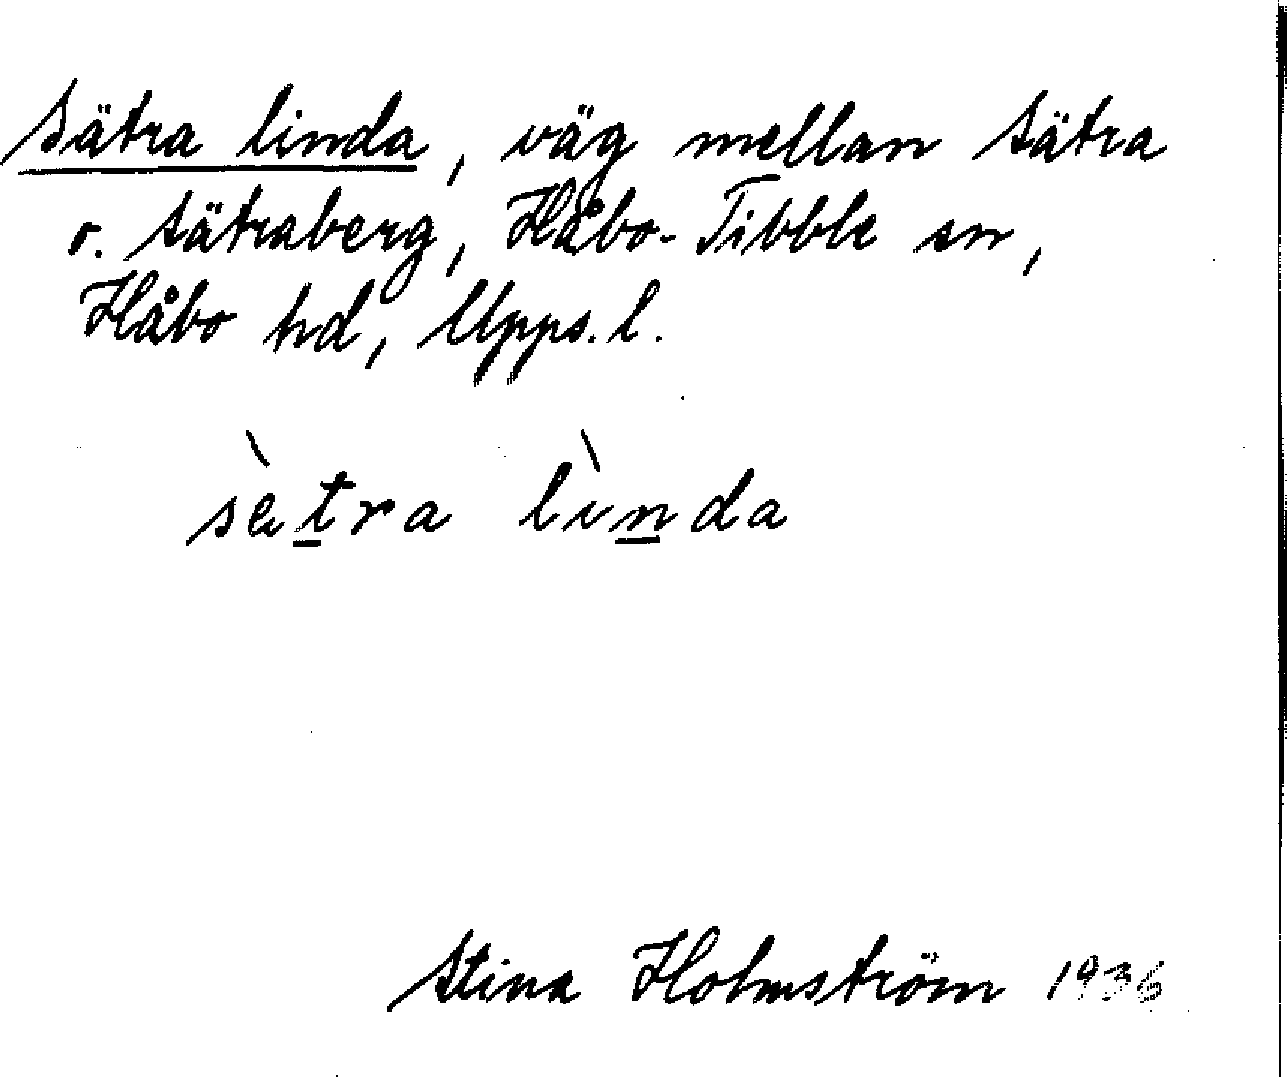 Sätra linda, väg mellan Sätra
o. Sätraberg, Håbo-Tibble sn,
Håbo hd, Upps. l.
sètra lìnda
Stina Holmström 1936